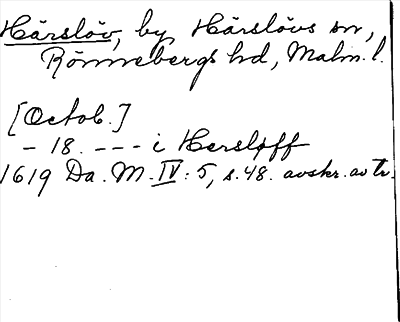 Härslöv, by, Härslövs sn,
Rönnebergs hd, Malm. l.
[Octob.]
- 18. --- i Hersløff
1619 Da. M. IV: 5, s. 48. avskr. av tr.